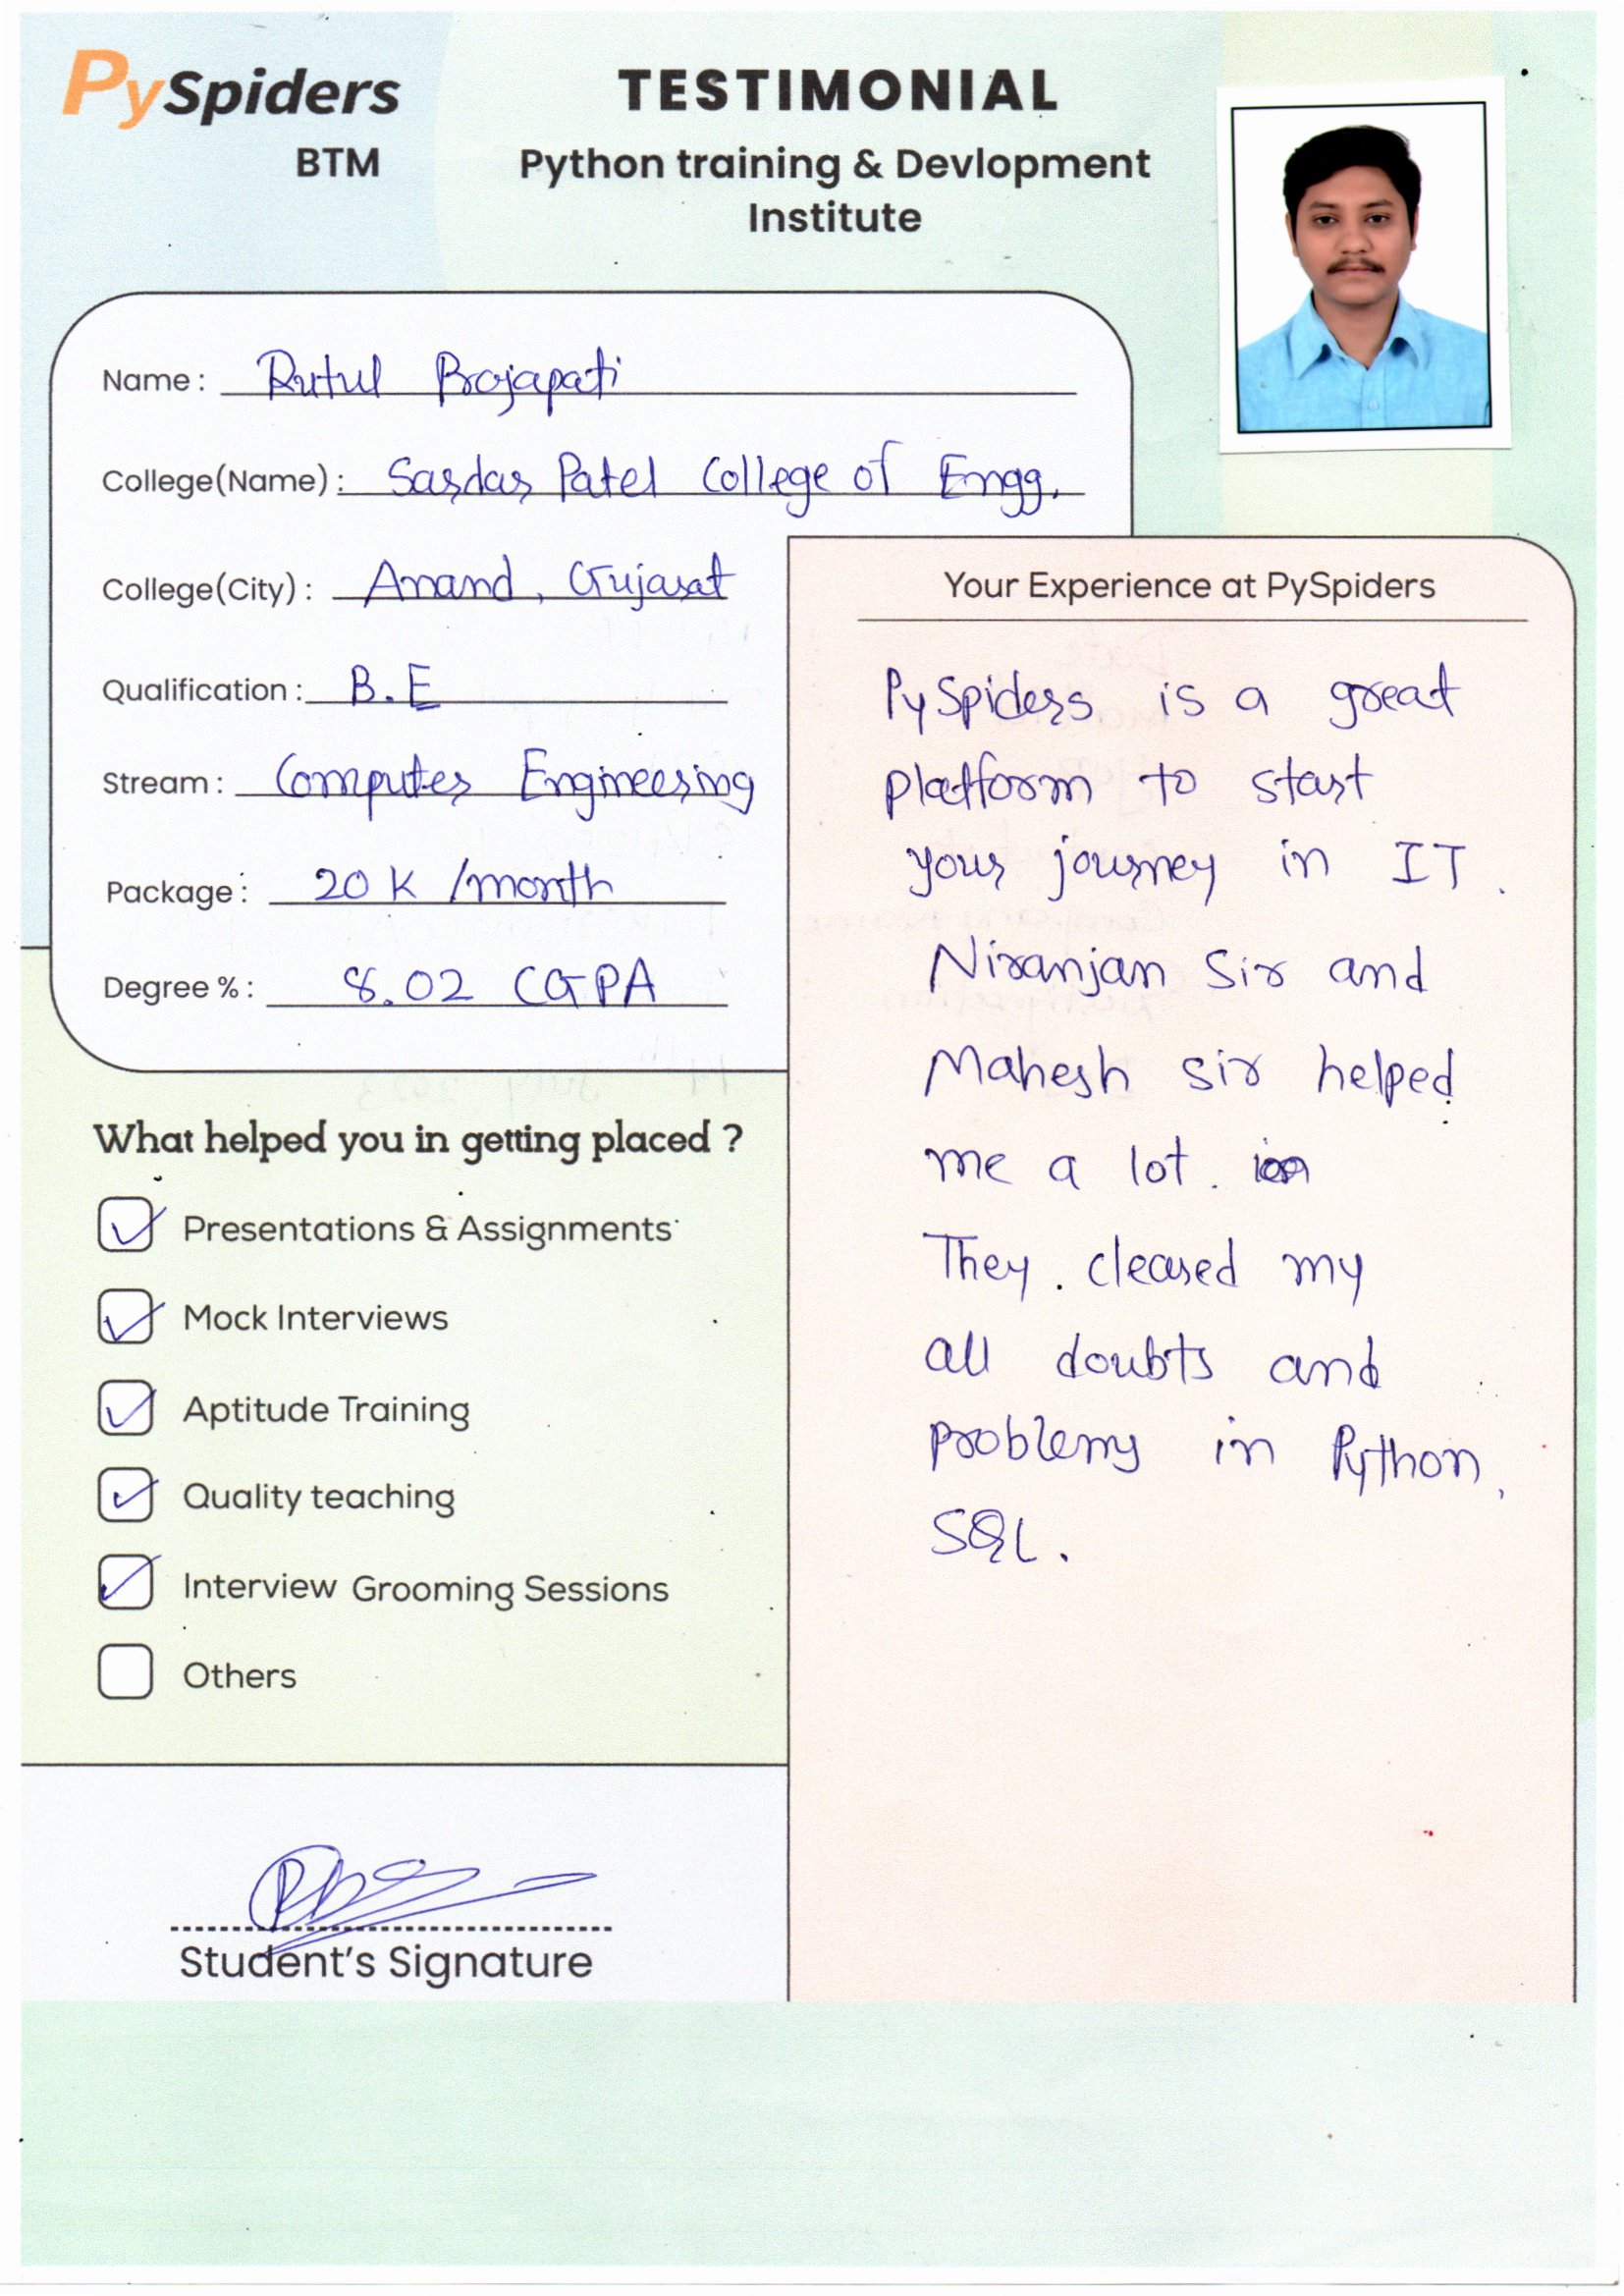 PySpiders
BTM
TESTIMONIAL
Python training & Devlopment
Institute
Name : Rutul Prajapati
College(Name) : Sardar Patel College of Engg.
College(City) : Anand, Gujarat
Qualification : B.E
Stream : Computer Engineering
Package : 20 K /month
Degree % : 8.02 CGPA
What helped you in getting placed ?
Presentations & Assignments
Mock Interviews
Aptitude Training
Quality teaching
Interview Grooming Sessions
Others
Student's Signature
Your Experience at PySpiders
PySpiders is a great
platform to start
your journey in IT.
Niranjan Sir and
Mahesh sir helped
me a lot.
They cleared my
all doubts and
problems in Python,
SQL.